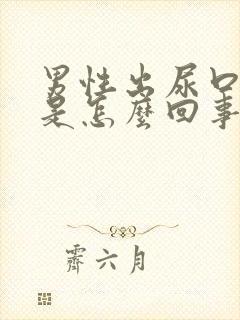 男性出尿口
是怎麼回事
霽六月